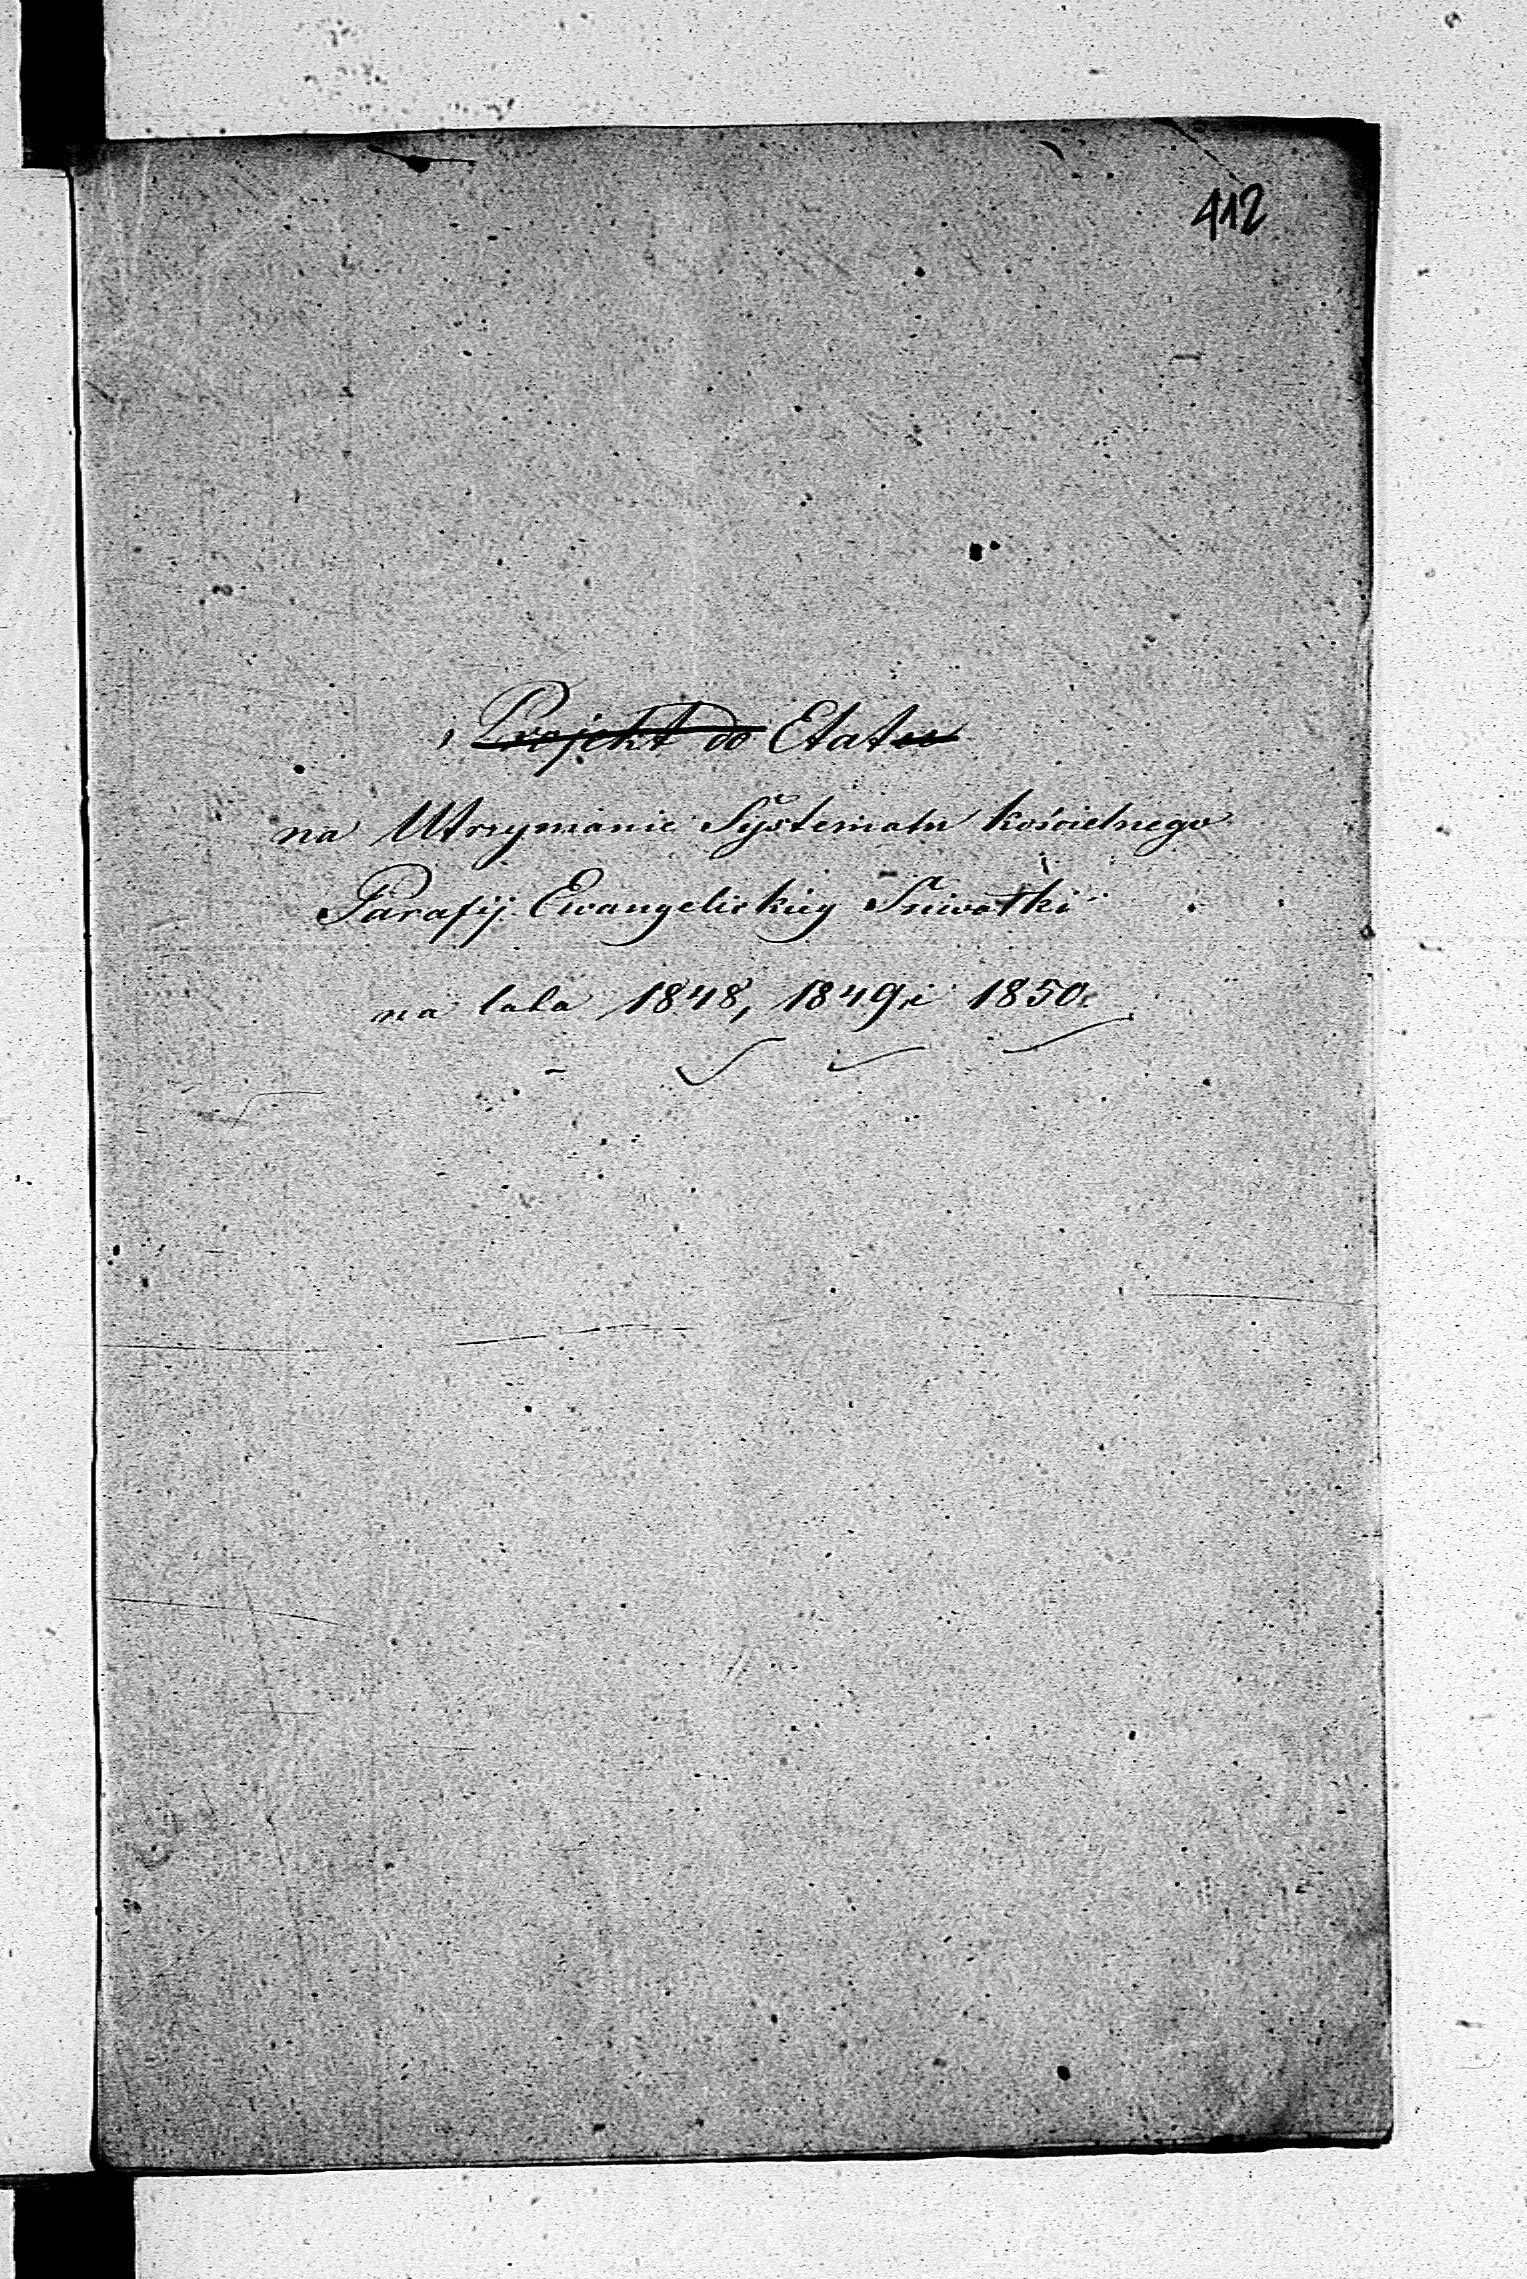 412
Projekt do Etatu
na Utrzymanie Systematu kościelnego
Parafij Ewangelickiey Suwałki
na lata 1848, 1849 i 1850.